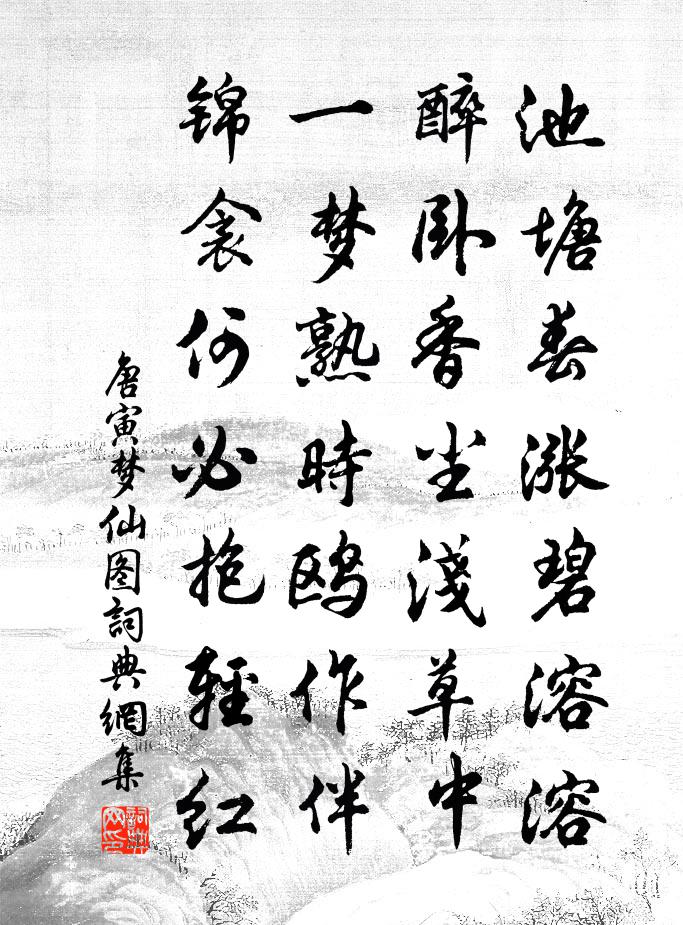 池塘春漲碧溶溶
醉卧香尘淺草中
一梦熟時鸥作伴
锦衾何必抱輕红
唐寅梦仙图詞典網集